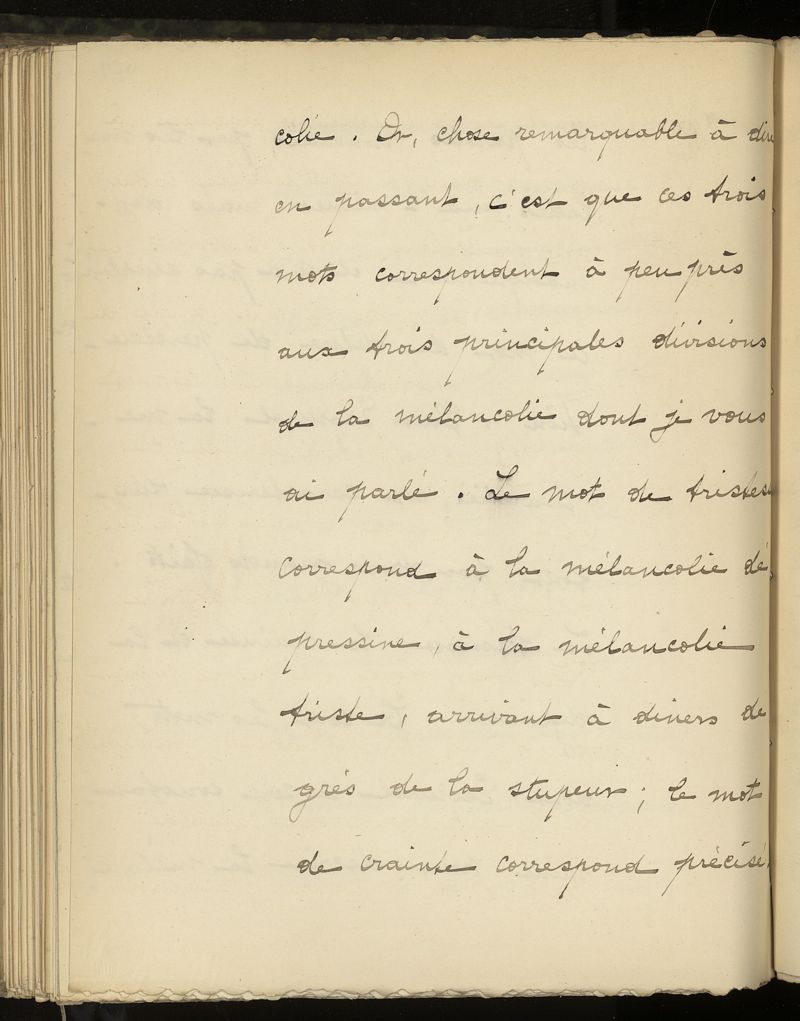 colie. Or, chose remarquable à dire
en passant, c'est que ces trois
mots correspondent à peu près
aux trois principales divisions
de la mélancolie dont je vous
ai parlé. Le mot de tristesse
correspond à la mélancolie dé-
pressive, à la mélancolie
triste, arrivant à divers de
grés de la stupeur; le mot
de crainte correspond précisé-